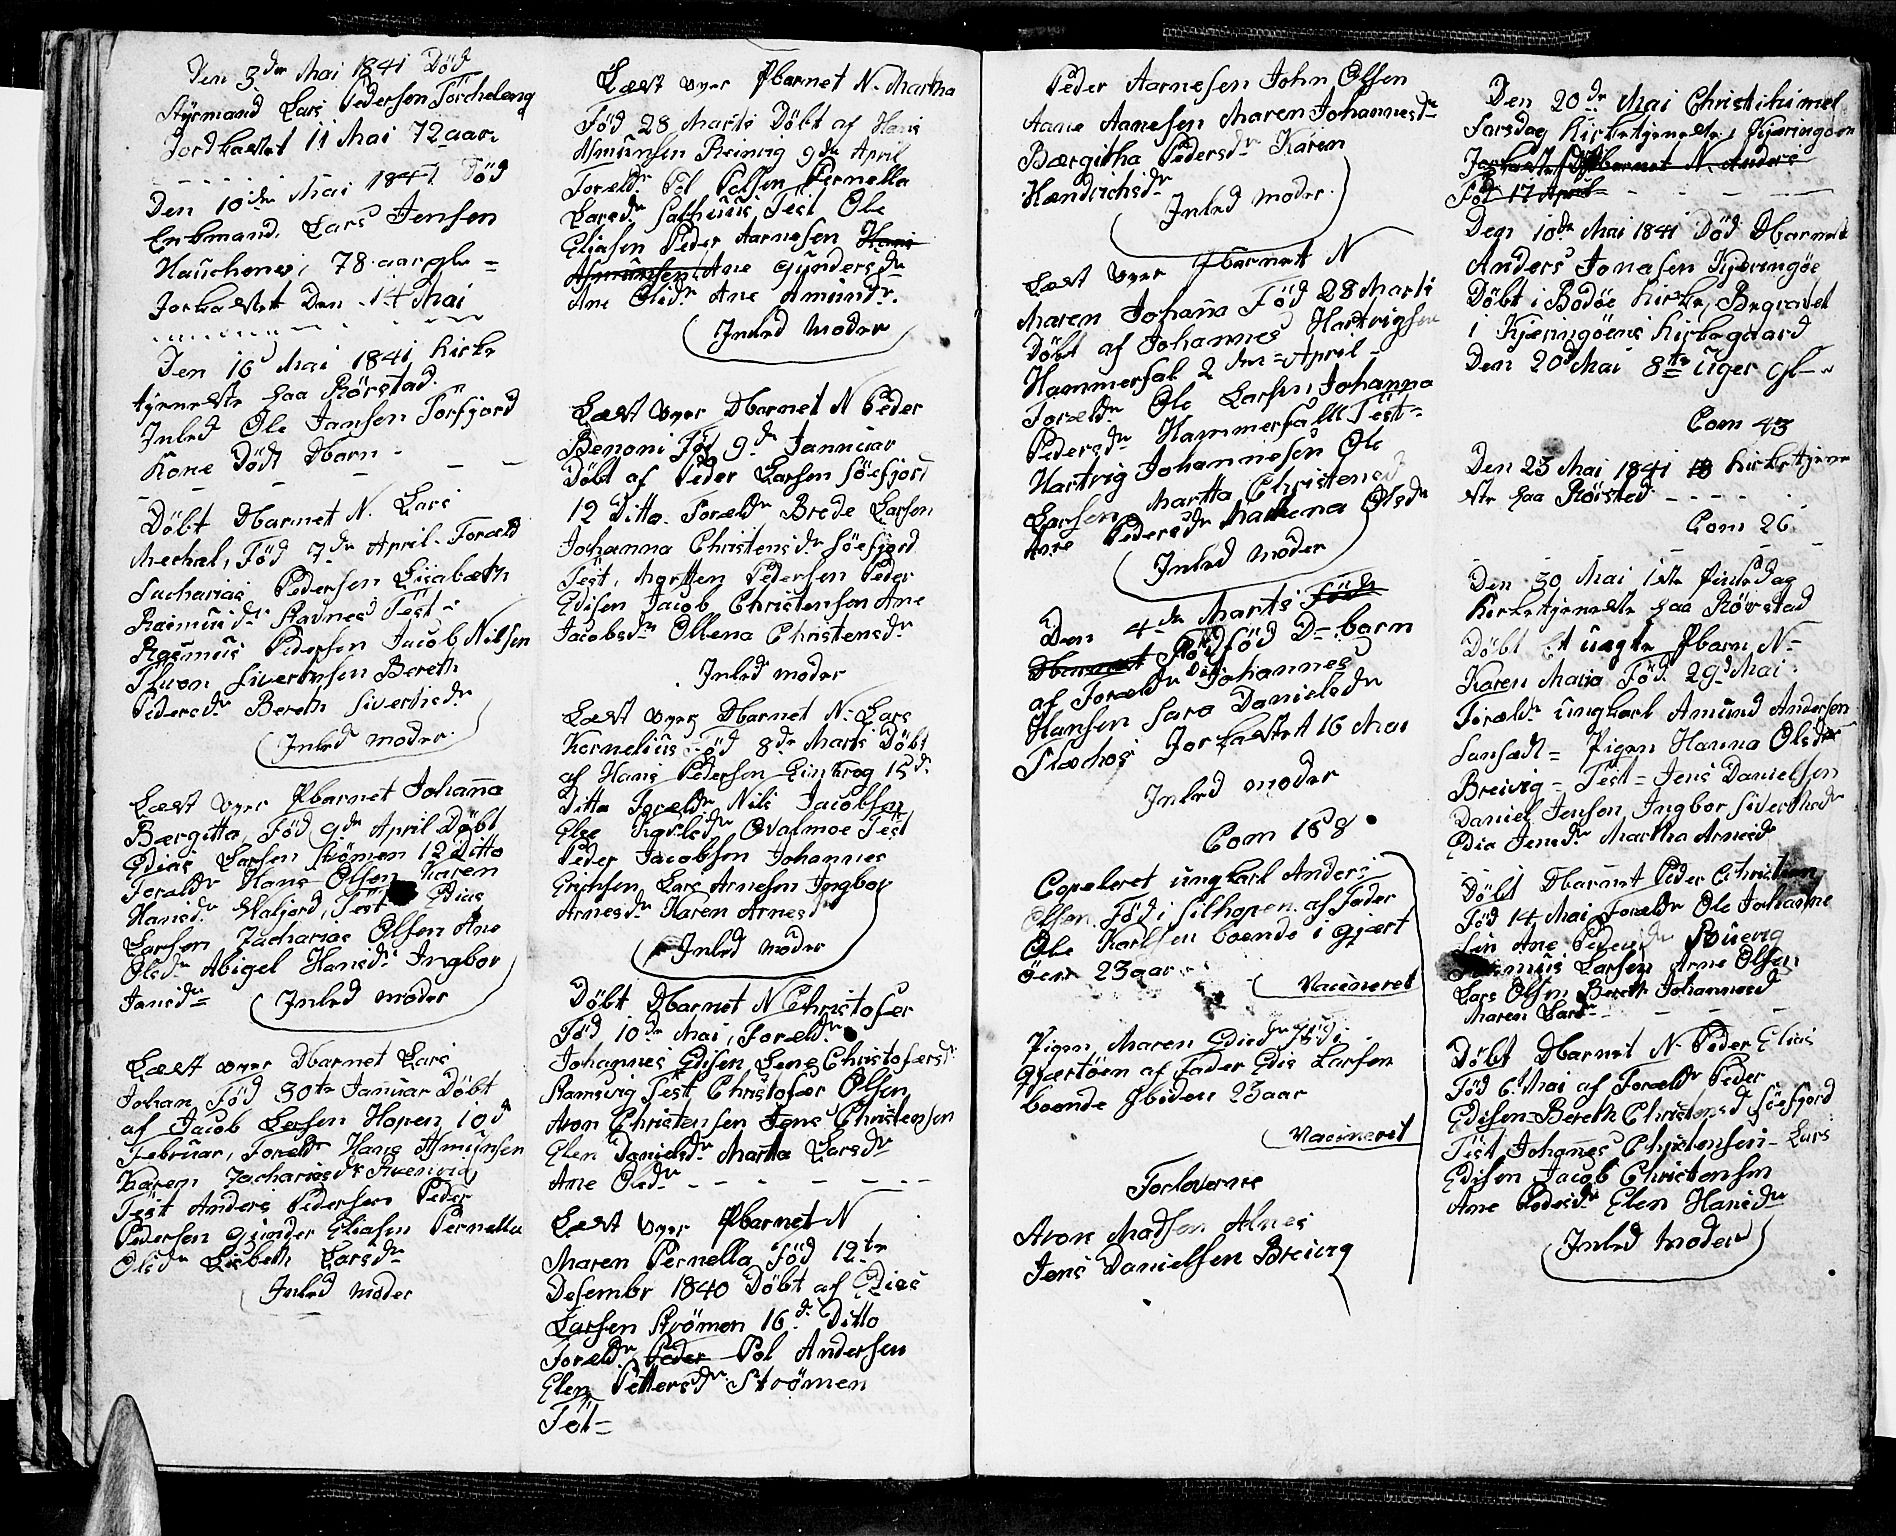 Den 3de Mai 1841 Död
Styrmand Lars Pedersen Torcheleng
Jordkastet 11 Mai 72 aar
Den 10de Mai 1841 Död
Enkmand Lars Jensen
Hauchenes, 78 aar gl =
Jorkastet Den 14 Mai
Den 16 Mai 1841 Kirke
tjeneste paa Rörstad
Inled Ole Jansen Torfjord
Kone Död Dbarn -
Döbt Dbarnet N. Lars
Mechal, Föd 7de April. Foræld
Sacharias Pedersen Lisabeth
Rasmusdr Stavnes Test =
Rasmus Pedersen Jacob Nilsen
Sivertsen Bereth
Pedersdr Bereth Sivertsdr
Inled Moder
Læst over Pbarnet Johanna
Bærgitta Föd 9de April Döbt
Edias Larsen Strömen 12 Ditto
Forældr Hans Olsen Karen
Hansdr Valjord, Test Edias
Larsen Zacharias Olsen Ane
Olsdr Abigel Hansdr Ingbor
Jensdr Inled Moder
Læst over Dbarnet Lars
Johan Föd 30te Januar Döbt
af Jacob Larsen Hopen 10d
Februar, Foræld Hans Asmunsen
Karen Zachariasdr
Test Anders Pedersen Peder
Pedersen Gunder Eliasen Pernella
Olsdr Lisbeth Larsdr
Inled Moder
Læst over Pbarnet N. Martha
Föd 28 Marts Döbt af Hans
Asmunsen Reinvig 9de April
Foræld Pol Polsen Pernella
Larsdr Salhuus, Test Ole
Eliasen Peder Aarnesen Hans
Asmunsen Ane Gundersdr
Ane Olsdr Ane Amundr.
Inled Moder
Læst over Dbarnet N Peder
Benoni Föd 9d Jannuar
Döbt af Peder Larsen Söefjord
12 Ditto. Foræld Brede Larsen
Johanna Christensdr Söefjord
Test, Mortten Pedersen Peder
Edisen Jacob Christensen Ane
Jacobsdr Ollena Christensdr
Inled Moder
Læst over Dbarnet N. Lars
Kornelius Föd 8de Marts Döbt
af Hans Pedersen 15d
Ditto Foræld Nils Jacobsen
Else Karlsdr Qvalmoe Test
Peder Jacobsen Johannes
Erichsen Lars Arnesen Ingbor
Arnesdr Karen Arnesd
Inled Moder
Döbt Dbarnet N Christofer
Föd 10de Mai, Foræld
Johannes Edisen Lene Christofersd
Ramsvig Test Christofer Olsen
Aron Christensen Jens Christensen
Elen Danielsdr Martta Larsdr
Ane Olsdr
Læst over Pbarnet N
Maren Pernella Föd 12te
Desember 1840 Döbt af Edias
Larsen Strömen 16d Ditto
Foræld Peder Pol Andersen
Elen Pettersdr Strömen
Test =
Peder Aarnesen John Olsen
Aane Aanesen Maren Johannesdr
Bærgitha Pedersdr Karen
Hændrichsdr
Inled Moder
Læst over Pbarnet N
Maren Johanna Föd 28 Marts
Döbt af Johannes Hartvigsen
Hammerfal 2den April
Foræld Ole Larsen Johanna
Pedersdr Hammerfall Test =
Hartvig Johannesen Ole
Larsen Martta Christensd
Ane Pedersdr Marthena Olsdr
Inled Moder
Den 4de Marts Föd
Dbarnet Dödföd D= barn
af Foræld Johannes
Hansen Sara Danielsdr
Jorkastet 16 Mai
Inled Moder
Com 168
Copuleret ungkarl Anders
Olsen Föd i Silhopen af Fader
Ole Karlsen boende i Gjært
öen 23 aar
Vacineret
Pigen Maren Edisd Föd i
Gjærtöen af Fader Edis Larsen
boende 23 aar
Vacineret
Forloverne
Aron Madsen Alnes
Jens Danielsen Breivig
Den 20de Mai Christihimel
farsdag Kirketjeneste i Kjæringöen
Jorkastet Dbarnet N. Anders
Föd 17 April
Den 10de Mai 1841 Död Dbarnet
Anders Jonasen Kjæringöe
Döbt i Bodöe Kirke, Begravet
i Kjæringöens Kirkegaard
Den 20d Mai 8te Uger gl =
Com 43
Den 23 Mai 1841 Kirketjene
ste paa Rörsted
Com 26
Den 30 Mai 1ste Pinsedag
Kirketjeneste paa Rörstad
Döbt Et uægte Pbarn N =
Karen Maria Föd 29d Mai
Foræld ungkarl Amund Andersen
Sansædt = Pigen Hanna Olsdr
Breivig = Test = Jens Danielsen
Daniel Jensen Ingbor Sivertsdr
Edia Jensdr Martha Arnesdr
Döbt Dbarnet Peder Christian
Föd 14 Mai Foræld Ole Johanne
sen Ane Pedersdr
Rasmus Larsen Arne Olsen
Lars Olsen Bereth Johannesd
Maren Larsdr
Döbt Dbarnet N. Peder Elias
Föd 6t Mai af Foræld Peder
Edisen Bereth Christensd Söefjord
Test Johannes Christensen - Lars
Edisen Jacob Christensen
Ane Pedersdr Elen Hansdr
Inled Moder